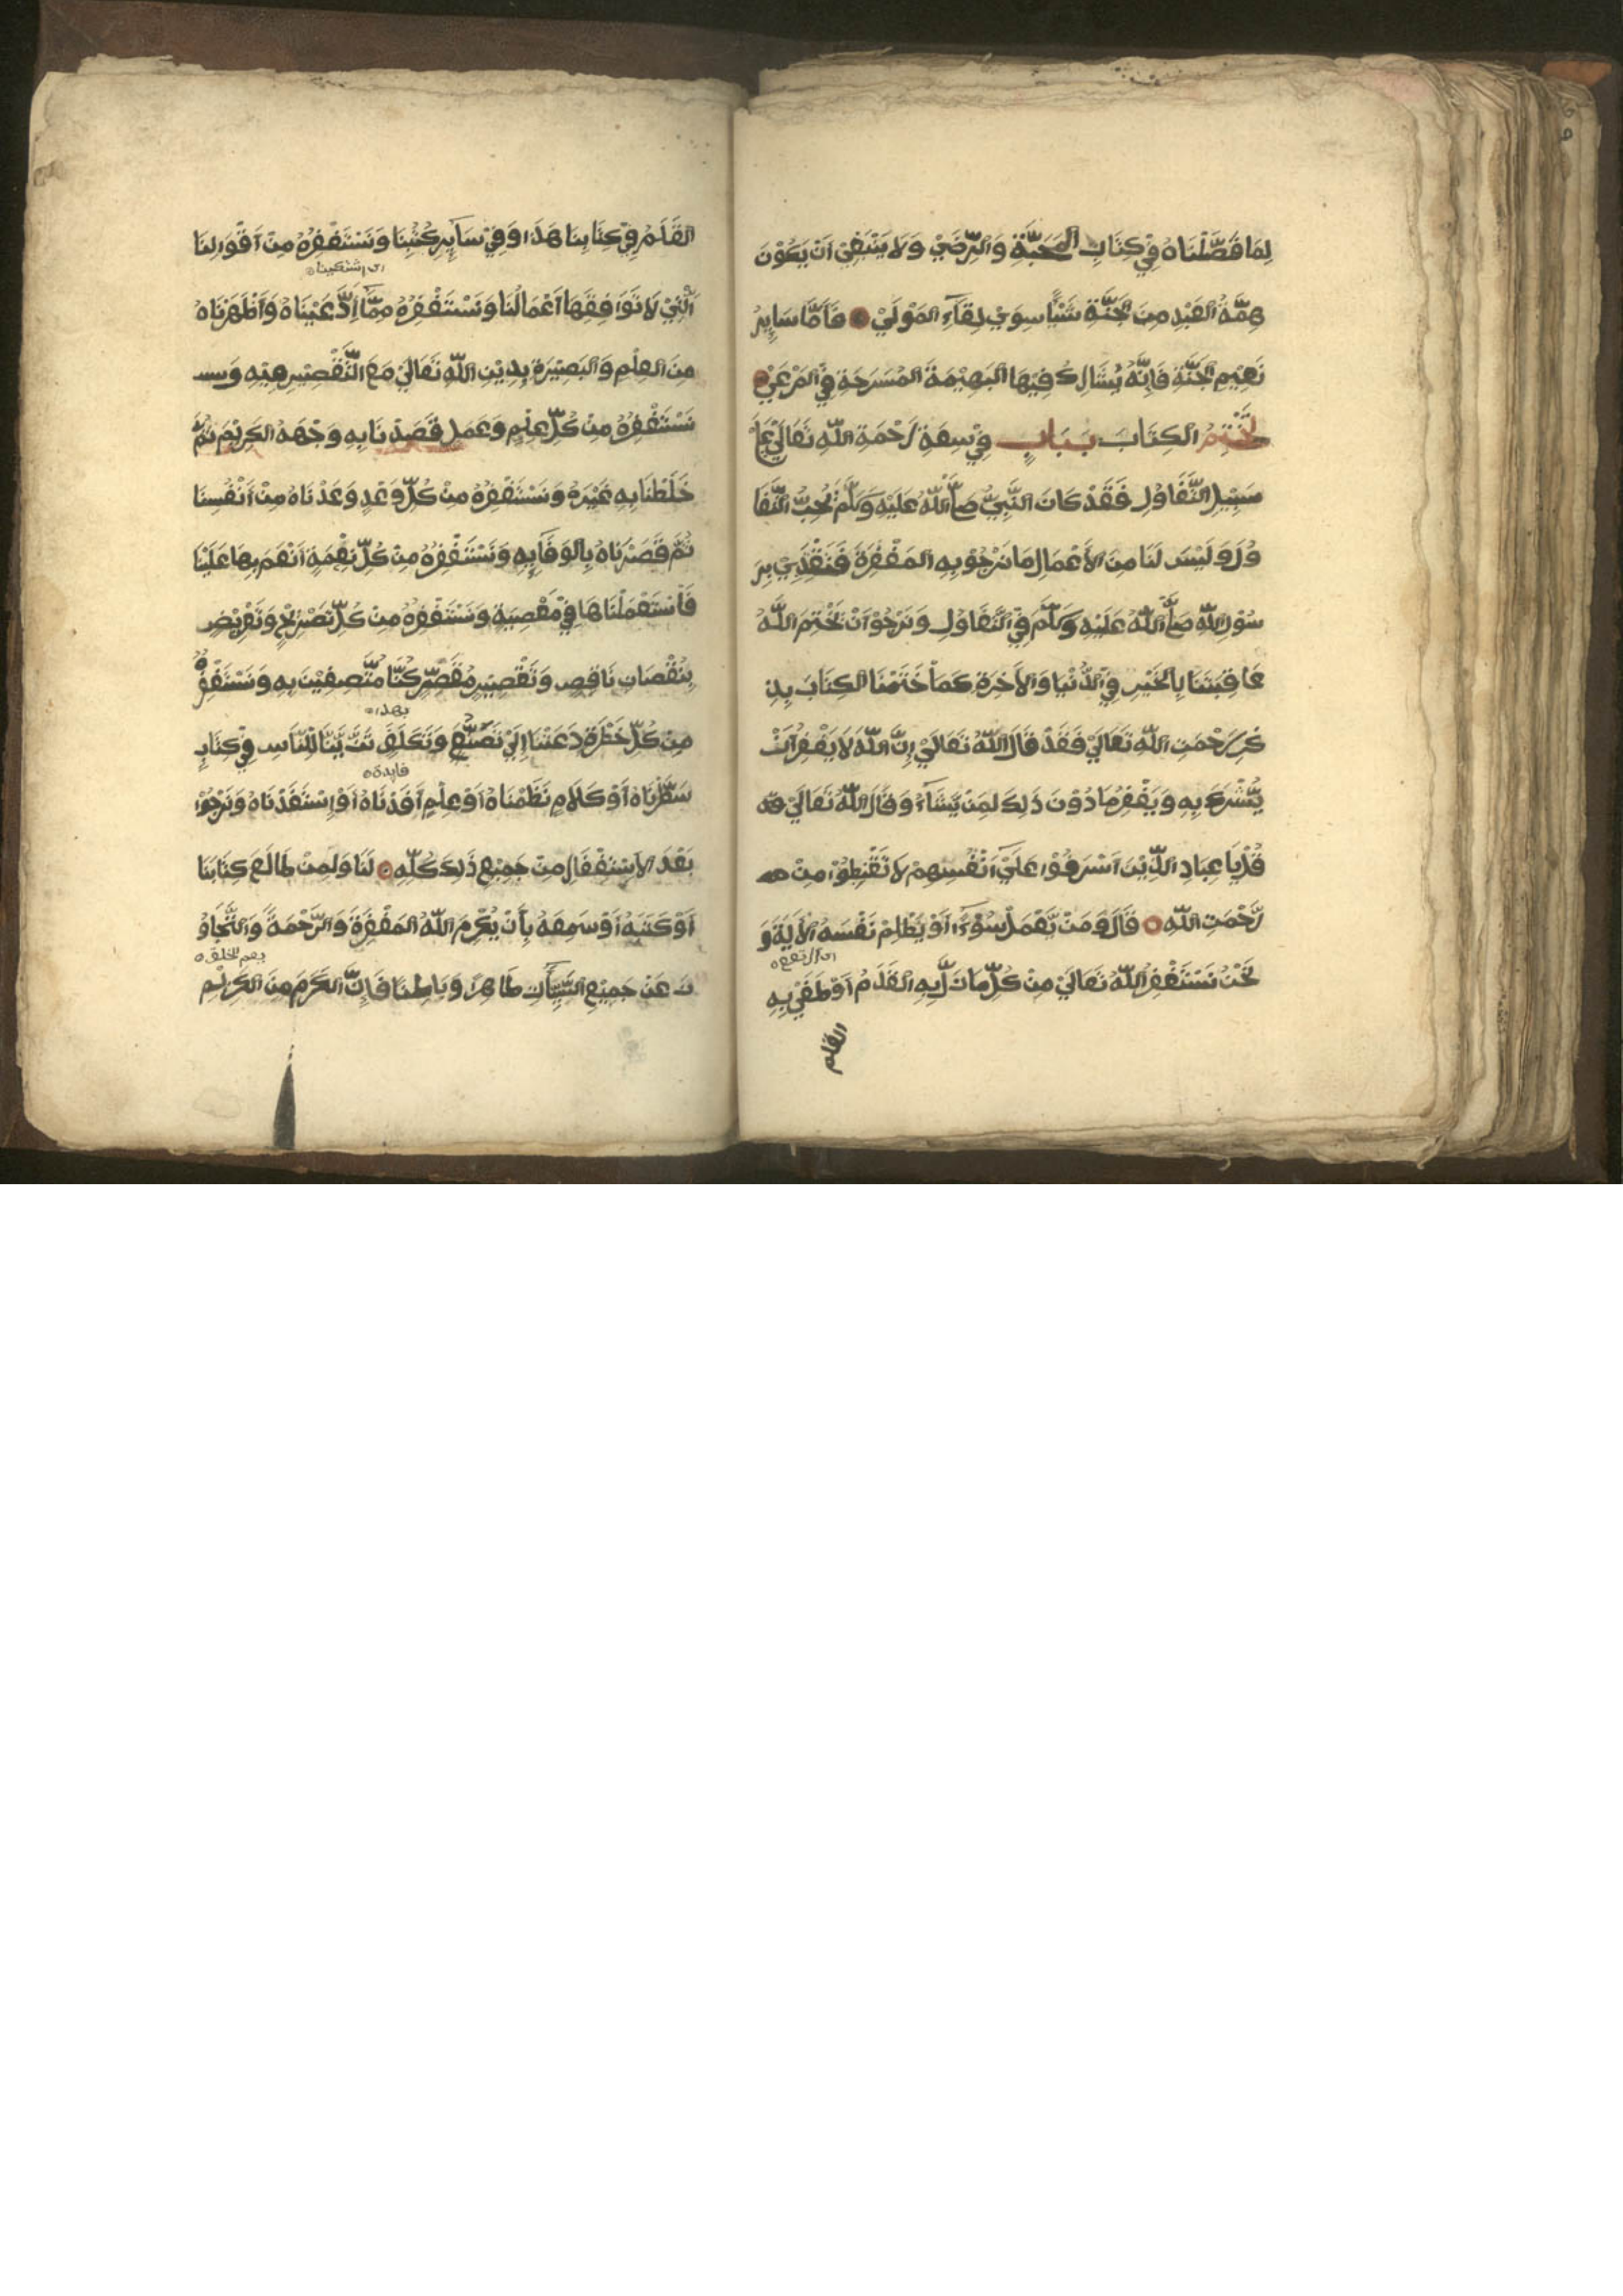 لِمَا فَصَّلْنَاهُ فِيْ كِتَابِ الْمَحَبَّةِ وَالرِّضَيْ وَلَا يَنْبَغِيْ اَنْ يَكُوْنَ
هِمَّةُ الْعَبْدِ مِنَ الْجَنَّةِ شَيْأً سِوَيْ لِقَآءِ الْمَوْلَيْ فَاَمَّا سَايِرُ
نَعِيْمِ الْجَنَّةِ فَاِنَّهُ يُشَارِكُ فِيْهَا الْبَهِيْمَةَ الْمُسَرَحَةَ فِيْ الْمَرْعَيْ
نَخْتِمُ الْكِتَابَ بِبَابٍ فِيْ سِعَةِ رَحْمَةِ اللّٰهِ تَعَالَيْ عَلَيْ
سَبِيْلِ التَّفَاوُلِ فَقَدْ كَانَ النَّبِيُّ صَلَّى اللّٰهُ عَلَيْهِ وَسَلَّمَ يُحِبُّ التَّفَا
وُلَ وَلَيْسَ لَنَا مِنَ الْاَعْمَالِ مَا نَرْجُوْ بِهِ الْمَغْفِرَةَ فَنَقْتَدِيْ بِرَ
سُوْلِ اللّٰهِ صَلَّى اللّٰهُ عَلَيْهِ وَسَلَّمَ فِيْ التَّفَاوُلِ وَنَرْجُوْ اَنْ يَخْتِمَ اللّٰهُ
عَاقِبَتَنَا بِالْخَيْرِ فِيْ الدُّنْيَا وَالْاَخِرَةِ كَمَا خَتَمْنَا الْكِتَابَ بِذِ
كْرِ رَحْمَتِ اللّٰهِ تَعَالَيْ فَقَدْ قَالَ اللّٰهُ تَعَالَيْ اِنَّ اللّٰهَ لَا يَغْفِرُ اَنْ
يُّشْرَكَ بِهِ وَيَغْفِرُ مَا دُوْنَ ذَلِكَ لِمَنْ يَّشَآءُ وَقَالَ اللّٰهُ تَعَالَيْ
قُلْ يَا عِبَادِ الَّذِيْنَ اَسْرَفُوْا عَلَيْ اَنْفُسِهِمْ لَا تَقْنَطُوْا مِنْ
رَّحْمَتِ اللّٰهِ قَالَ وَمَنْ يَّعْمَلْ سُوْءًا اَوْ يَظْلِمْ نَفْسَهُ الْاَيَةَ وَ
اى ارتفع
نَحْنُ نَسْتَغْفِرُ اللّٰهَ تَعَالَيْ مِنْ كُلِّ مَا زَلَّ بِهِ الْقَدَمُ اَوْ طَغَيْ بِهِ
القلم
الْقَلَمُ فِيْ كِتَابِنَا هَذَا وَفِيْ سَآيِرِ كُتُبِنَا وَنَسْتَغْفِرُهُ مِنْ اَقْوَالِنَا
الَّتِيْ لَا تُوَافِقُهَا اَعْمَالُنَا وَنَسْتَغْفِرُهُ مِمَّا اِدَّعَيْنَاهُ وَاَظْهَرْنَاهُ
مِنَ الْعِلْمِ وَالْبَصِيْرَةِ بِدِيْنِ اللّٰهِ تَعَالَيْ مَعَ التَّقْصِيْرِ فِيْهِ وَ
نَسْتَغْفِرُهُ مِنْ كُلِّ عِلْمٍ وَعَمَلٍ قَصَدْنَا بِهِ وَجْهَهُ الْكَرِيْمَ ثُمَّ
خَلَطْنَا بِهِ غَيْرَهُ وَنَسْتَغْفِرُهُ مِنْ كُلِّ وَعْدٍ وَعَدْنَاهُ مِنْ اَنْفُسِنَا
ثُمَّ قَصَرْنَاهُ بِالْوَفَا بِهِ وَنَسْتَغْفِرُهُ مِنْ كُلِّ نِعْمَةٍ اَنْعَمَ بِهَا عَلَيْنَا
فَاسْتَعْمَلْنَاهَا فِيْ مَعْصِيَةٍ وَنَسْتَغْفِرُهُ مِنْ كُلِّ تَصْرِيْحٍ وَتَعْرِيْضٍ
بِنُقْصَانِ نَاقِصٍ وَتَقْصِيْرِ مُقَصِّرٍ كُنَّا مُتَّصِفِيْنَ بِهِ وَنَسْتَغْفِرُهُ
مِنْ كُلِّ خَطْرَةٍ دَعَتْنَا اِلَيْ تَصَنُّعٍ وَتَكَلُّفٍ تَزَيُّنًا لِلنَّاسِ فِيْ كِتَابٍ
فايدة
سَطَّرْنَاهُ اَوْ كَلَامٍ نَظَمْنَاهُ اَوْ عِلْمٍ اَفَدْنَاهُ اَوْ اِسْتَفَدْنَاهُ وَنَرْجُوْا
بَعْدَ الْاِسْتِغْفَارِ مِنْ جَمِيْعِ ذَلِكَ كُلِّهِ لَنَا وَلِمَنْ طَالَعَ كِتَابَنَا
اَوْ كَتَبَهُ اَوْ سَمِعَهُ بِاَنْ يُكْرِمَ اللّٰهُ الْمَغْفِرَةَ وَالرَّحْمَةَ وَالتَّجَاوُ
زَ عَنْ جَمِيْعِ السَّيِّاٰتِ ظَاهِرًا وَبَاطِنًا فَاِنَّ الْكَرَمَ مِنَ الْكَرِيْمِ